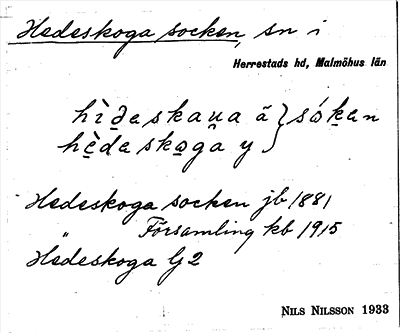 Hedeskoga socken, sn i
Herrestads hd, Malmöhus län
hìd̲eskau̯a ä } sók̲en
hè̲desko̲gȧ y
Hedeskoga socken jb 1881
" Församling kb 1915
Hedeskoga G2
NILS NILSSON 1933